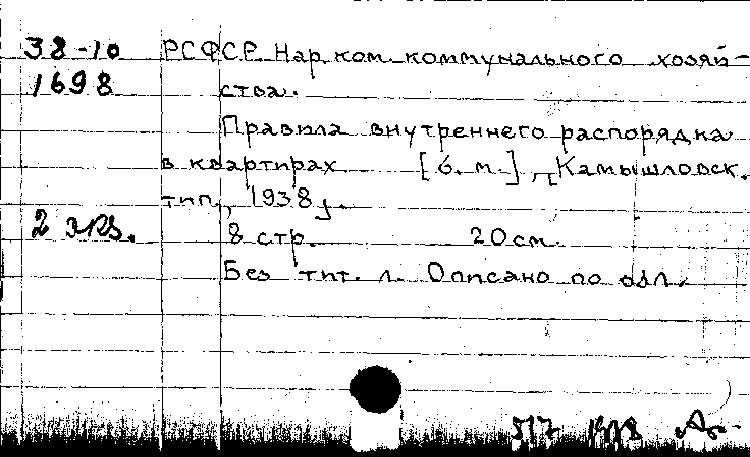 38-10 РСФСР. Нар. ком. коммунального хозяй-
1698 ства.
Правила внутреннего распорядка
в квартирах [б. м.], [Камышловск.
тип., 1938].
2 экз.
8 стр. 20 см.
Без тит. л. Описано по обл.
517 1938